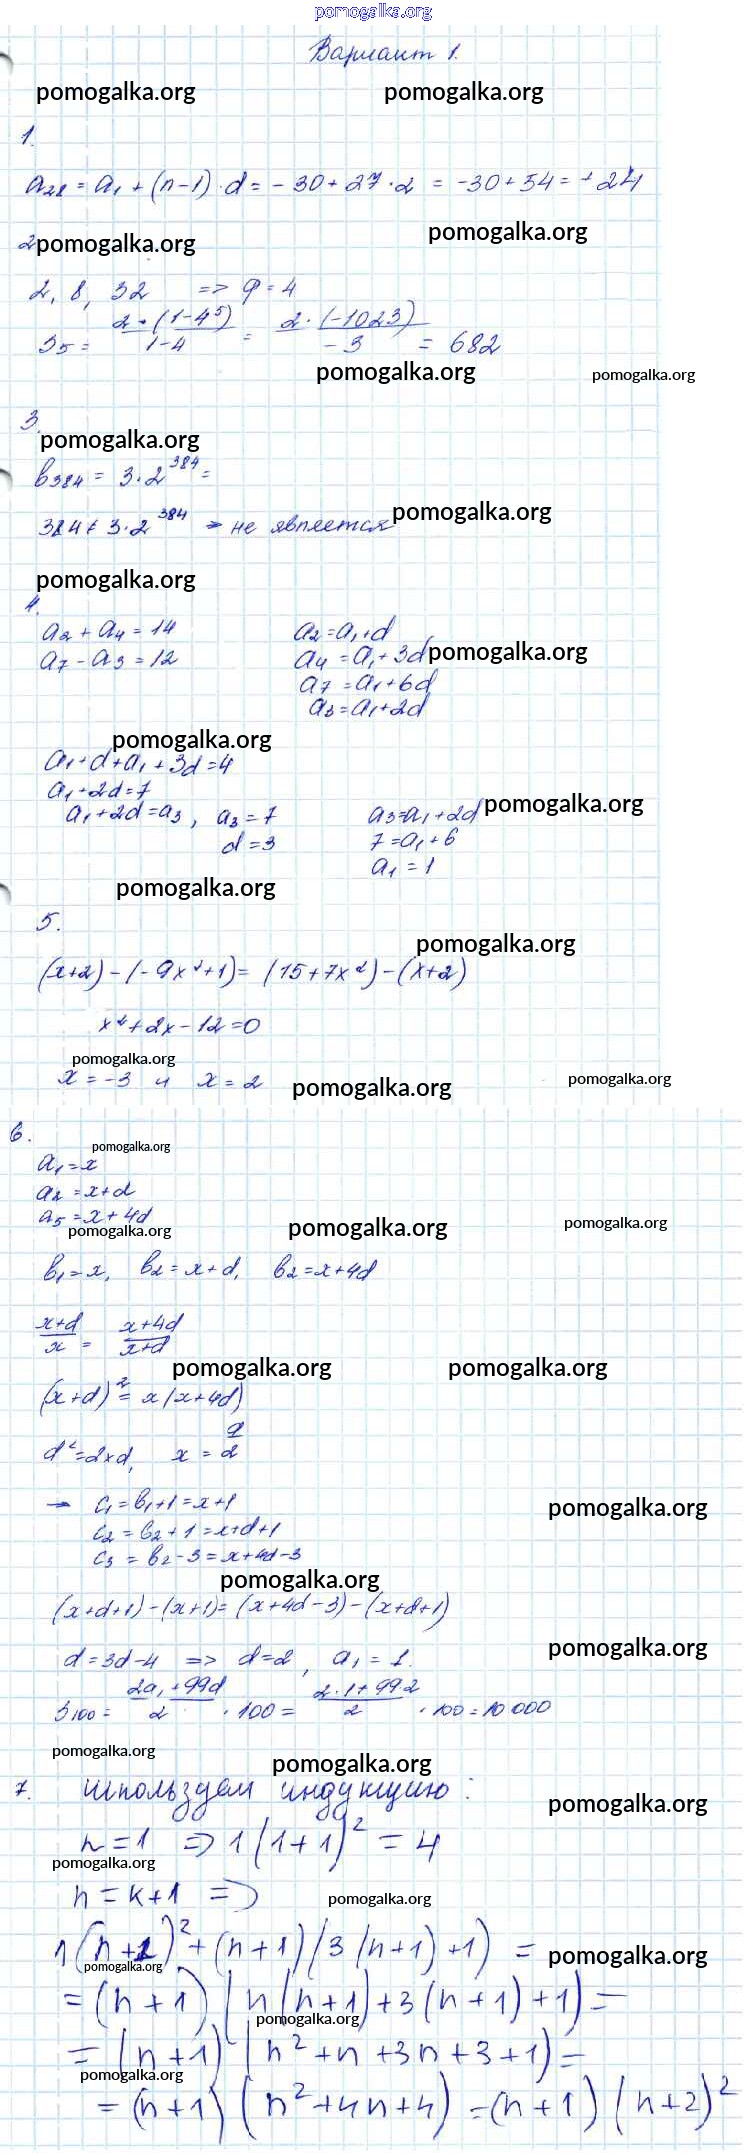 pomogalka.org
Вариант 1.
pomogalka.org pomogalka.org
1.
a₂₈ = a₁ + (n-1) · d = - 30 + 27 · 2 = -30 + 54 = + 24
pomogalka.org
2 pomogalka.org
2, 8, 32 => q = 4
S₅ = 2 · (1-4⁵) / 1-4 = 2 · (-1023) / -3 = 682
pomogalka.org pomogalka.org
3.
pomogalka.org
b₃₈₄ = 3 · 2³⁸⁴ =
384 ≠ 3 · 2³⁸⁴ → не является pomogalka.org
pomogalka.org
4.
a₂ + a₄ = 14 a₂ = a₁ + d
a₇ - a₃ = 12 a₄ = a₁ + 3d pomogalka.org
a₇ = a₁ + 6d
a₃ = a₁ + 2d
pomogalka.org
a₁ + d + a₁ + 3d = 4
a₁ + 2d = 7
a₁ + 2d = a₃, a₃ = 7 a₃ = a₁ + 2d pomogalka.org
d = 3 7 = a₁ + 6
a₁ = 1
pomogalka.org
5.
pomogalka.org
(x+2) - (-9x²+1) = (15+7x²) - (x+2)
x² + 2x - 12 = 0
pomogalka.org
x = -3 и x = 2 pomogalka.org pomogalka.org
6.
pomogalka.org
a₁ = x
a₂ = x+d
a₅ = x+4d
pomogalka.org pomogalka.org pomogalka.org
b₁ = x, b₂ = x+d, b₂ = x+4d
x+d / x = x+4d / x+d
pomogalka.org pomogalka.org
(x+d)² = x(x+4d)
d² = 2xd, x = d/2
→ c₁ = b₁+1 = x+1 pomogalka.org
c₂ = b₂+1 = x+d+1
c₃ = b₂-3 = x+4d-3
pomogalka.org
(x+d+1) - (x+1) = (x+4d-3) - (x+d+1)
d = 3d-4 => d=2, a₁ = 1. pomogalka.org
S₁₀₀ = 2a₁+99d / 2 · 100 = 2·1+99 2 / 2 · 100 = 10 000
pomogalka.org pomogalka.org
7. Используем индукцию: pomogalka.org
n = 1 => 1(1+1)² = 4
pomogalka.org
n = k+1 =>
pomogalka.org
1(n+1)² + (n+1)(3(n+1)+1) = pomogalka.org
pomogalka.org
= (n+1)(n(n+1)+3(n+1)+1) =
pomogalka.org
= (n+1)(n²+n+3n+3+1) =
pomogalka.org
= (n+1)(n²+4n+4) = (n+1)(n+2)²